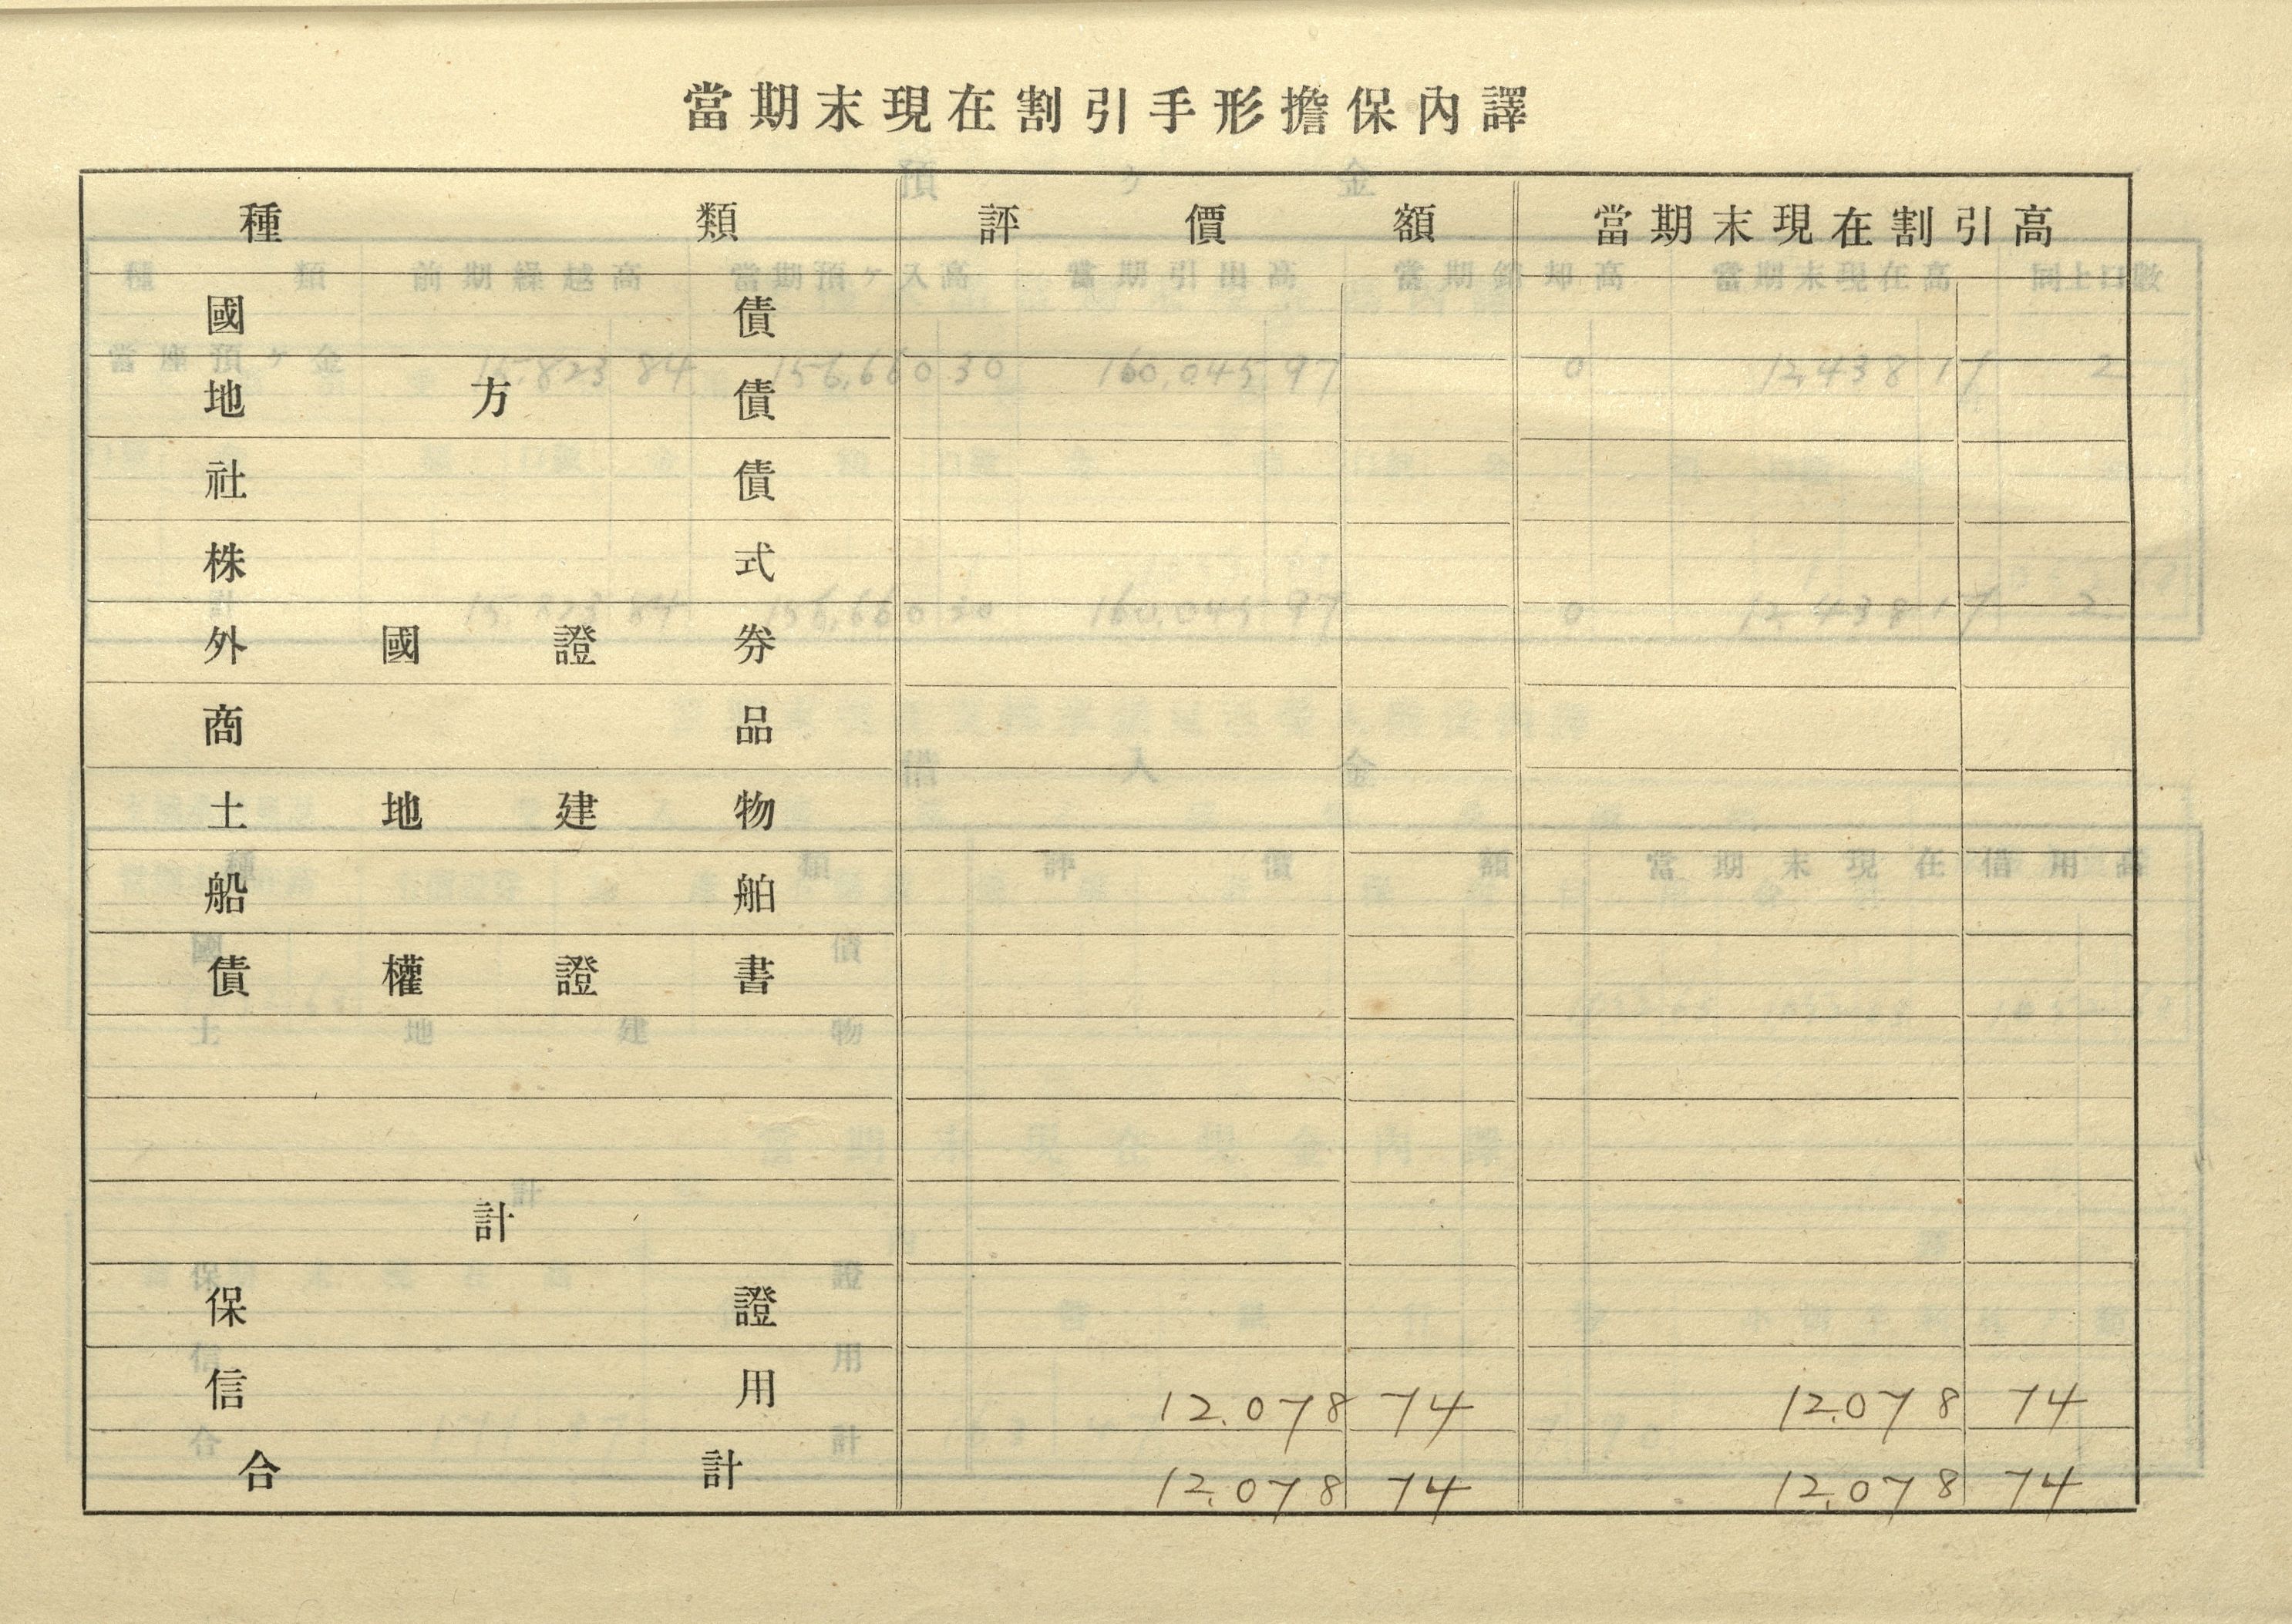 當期末現在割引手形擔保內譯
種類 評價額 當期末現在割引高
國債
地方債
社債
株式
外國證券
商品
土地建物
船舶
債權證書
計
保證
信用 12.078 74 12.078 74
合計 12.078 74 12.078 74